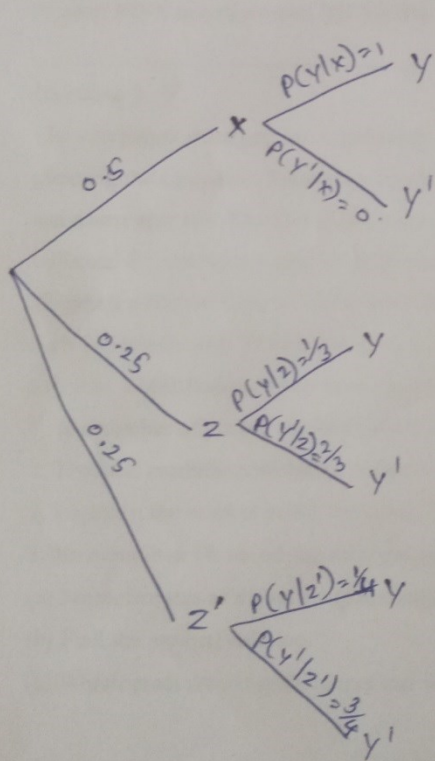 P(Y|X)=1 Y
0.5 X
P(Y'/X)=0. Y'
0.25 Z
P(Y/Z)=1/3 Y
P(Y'/Z)=2/3 Y'
0.25 Z'
P(Y/Z')=1/4 Y
P(Y'/Z')=3/4 Y'